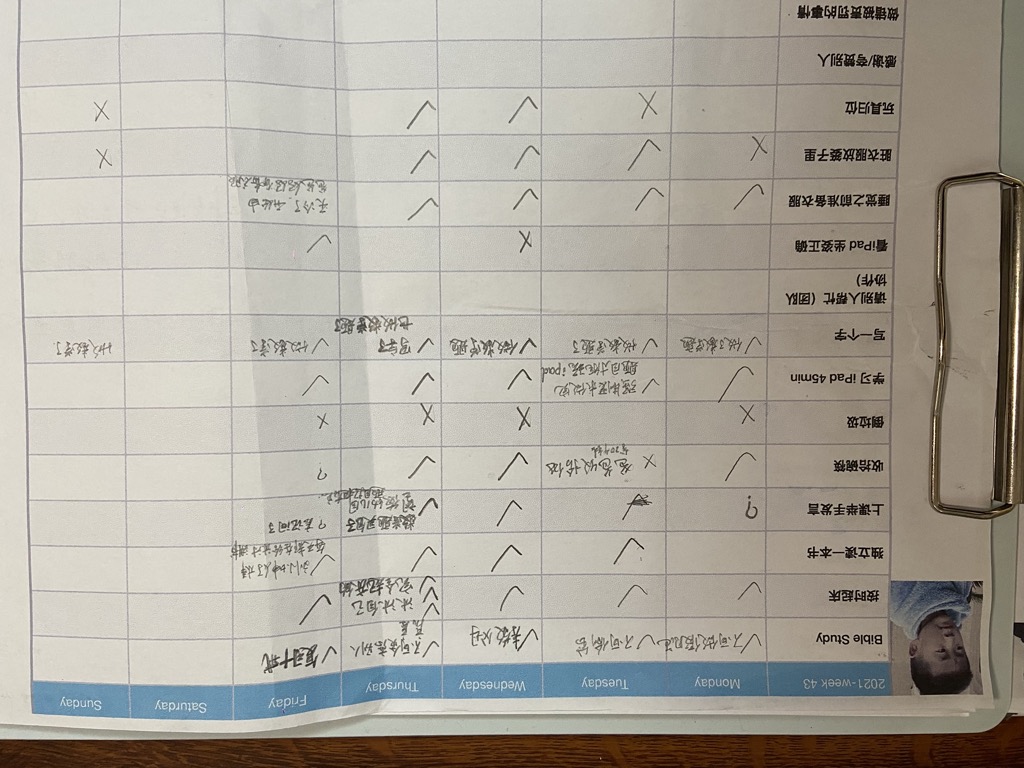 2021-week 43 Monday Tuesday Wednesday Thursday Friday Saturday Sunday
Bible Study ✓不可做假见 ✓不可偷窃 ✓孝敬父母 ✓不可贪恋别人 ✓复习十戒
房屋
按时起床 ✓ ✓ ✓ ✓ 自己 ✓
✓ 完全起床的
独立读一本书 ✓ ✓ ✓ ✓
每天都在给
上课举手发言 ? ✓ ✓ ✓ ? 忘记问了
收拾碗筷 ✓ × 爸爸收拾 ✓ ✓ ?
倒垃圾 × × × ×
学习 iPad 45min ✓ ✓ 强制要求做完 ✓ ✓ ✓
题目才能玩 ipad
写一个字 ✓做了数学题 ✓做数学题了 ✓做数学题 ✓写字了 ✓做数学了 做数学了
也做数学题了
请别人帮忙（团队
协作）
看iPad 坐姿正确 × ✓
睡觉之前准备衣服 ✓ ✓ ✓ ✓ 天冷了，开始由
爸爸妈妈准备衣服
脏衣服放篓子里 × ✓ ✓ ✓ ×
玩具归位 × ✓ ✓ ×
感谢/夸赞别人
做错被责罚的事情